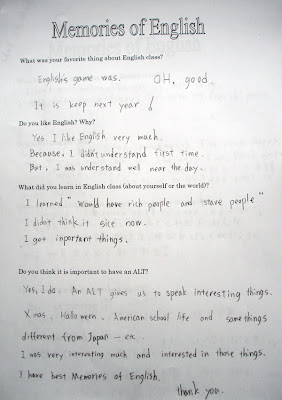 Memories of English
What was your favorite thing about English class?
English's game was. OH, good.
It is keep next year!
Do you like English? Why?
Yes. I like English very much.
Because, I didn't understand first time.
But, I was understand well near the day.
What did you learn in English class (about yourself or the world)?
I learned "Would have rich people and stave people"
I didn't think it since now.
I got inportant things.
Do you think it is important to have an ALT?
Yes, I do. An ALT gives us to speak interesting things.
Xmas, Halloween, American school life and somethings
different from Japan … etc.
I was very interesting much and interested in those things.
I have best Memories of English.
thank you.